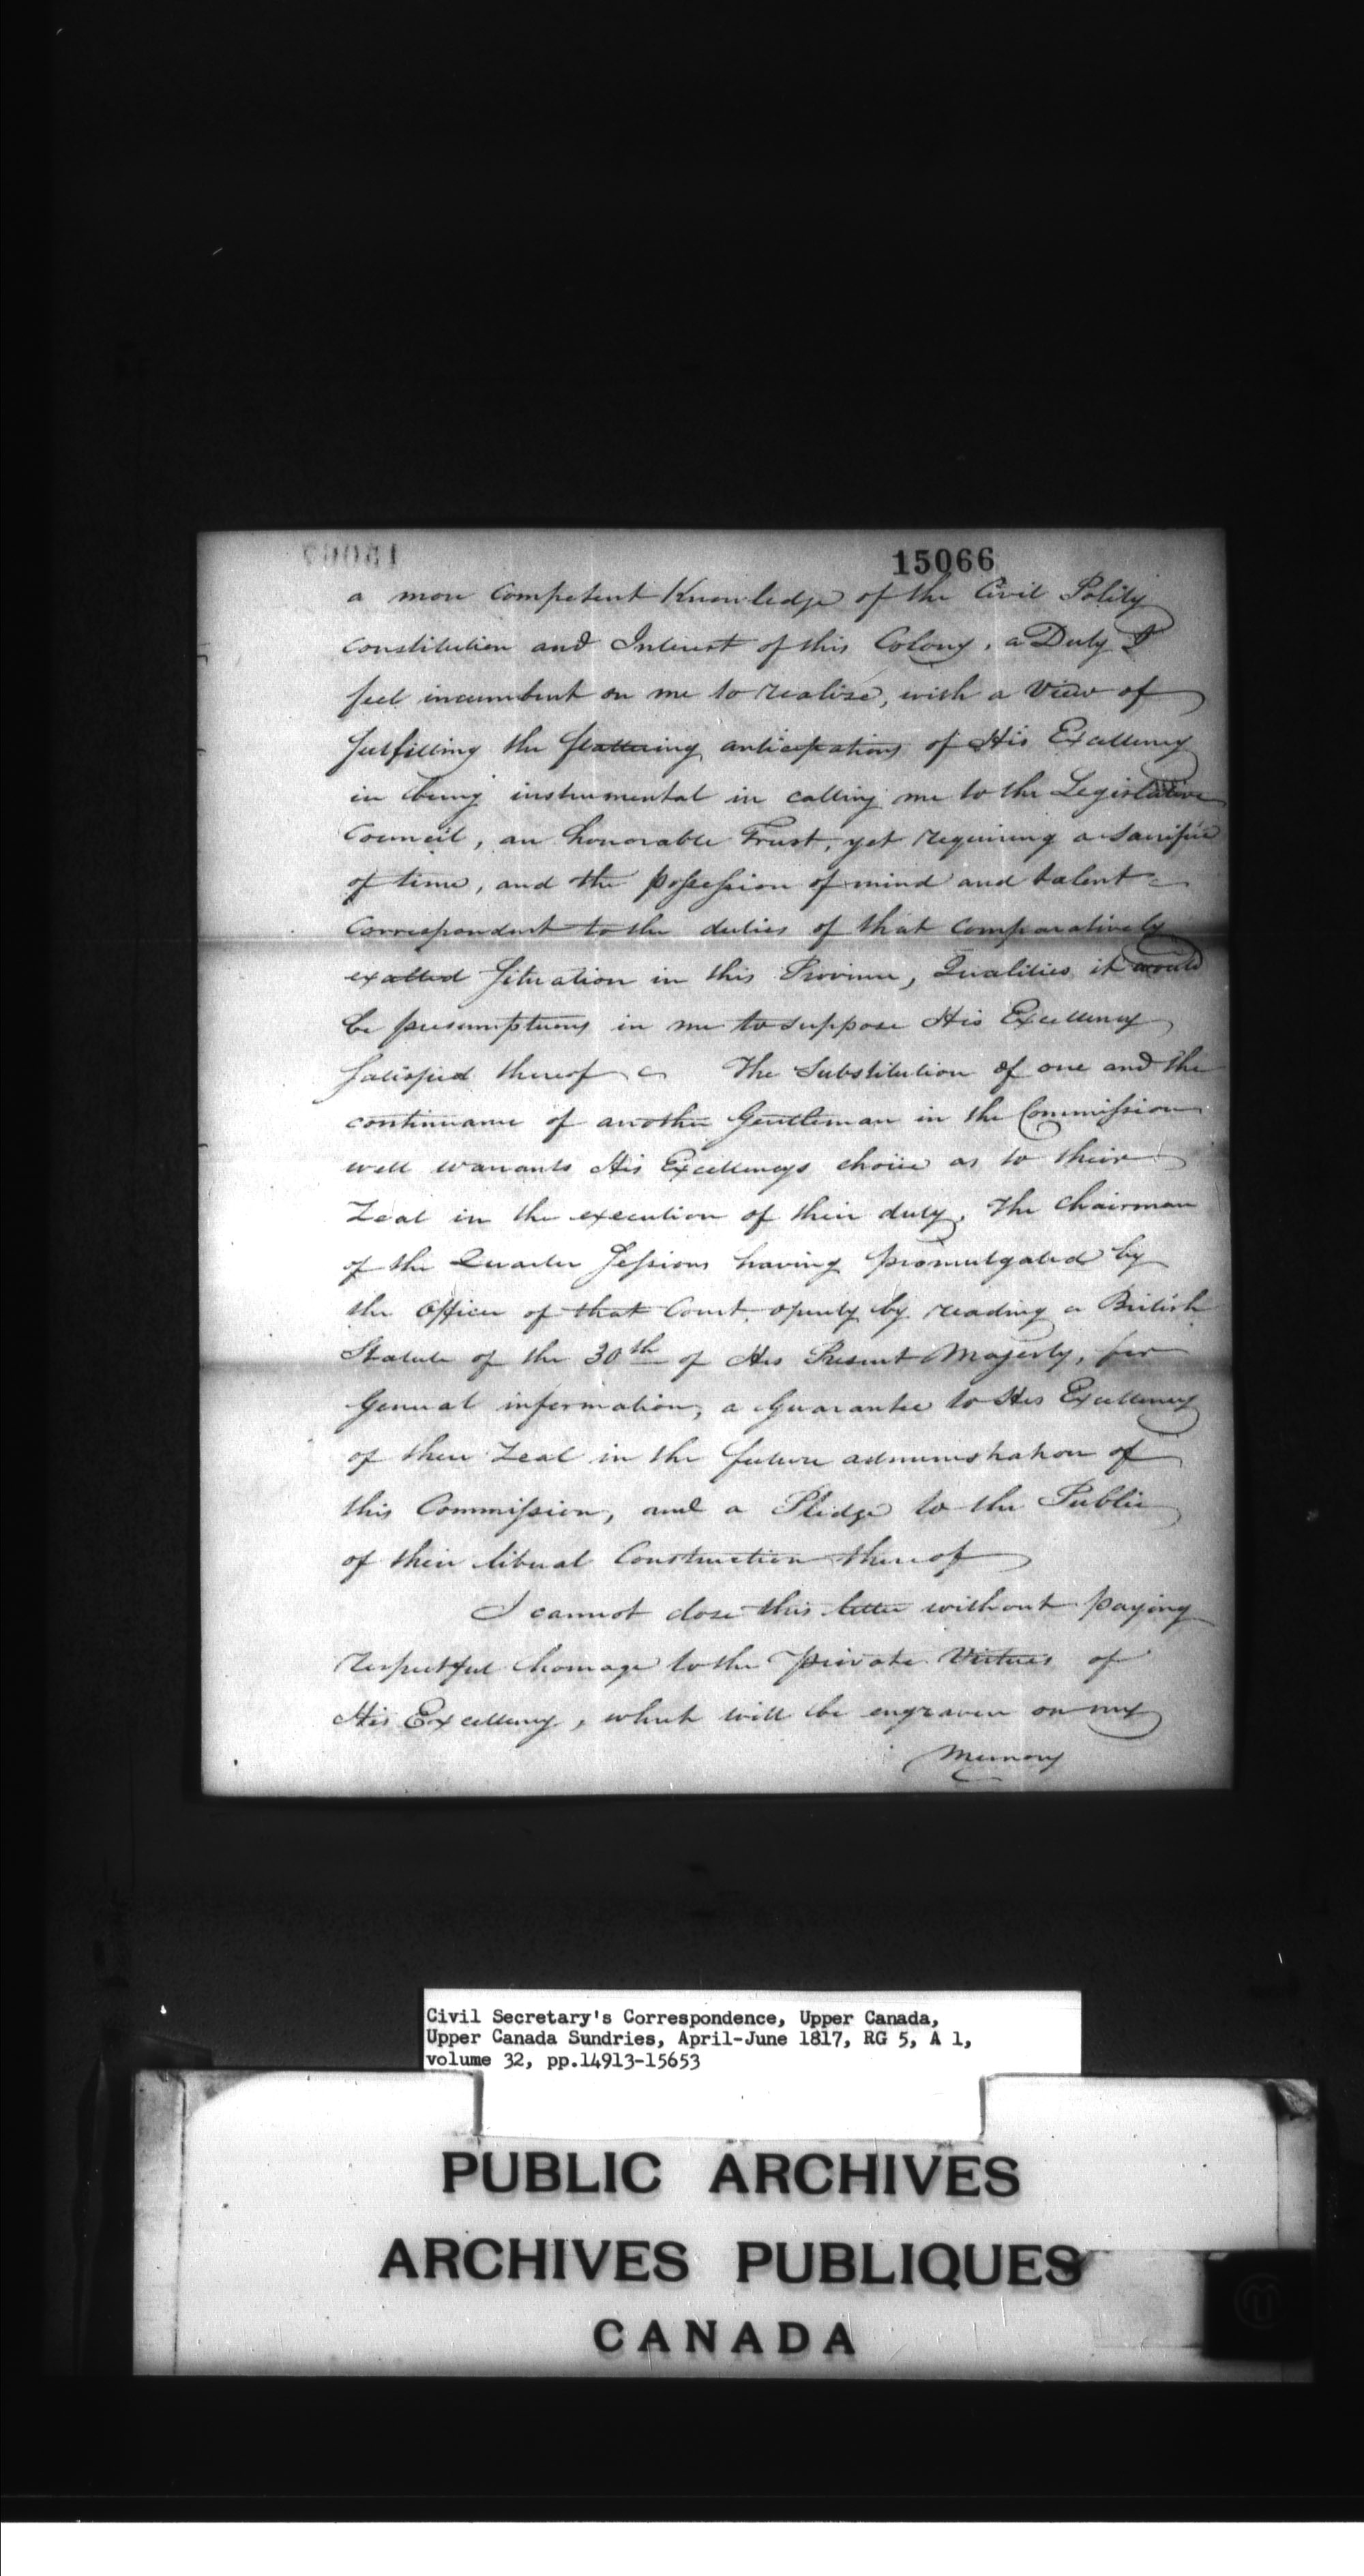 15066
a more competent Knowledge of the Civil Polity
constitution and Interest of this Colony, a Duty I
feel incumbent on me to realise, with a View of
fulfilling the flattering anticipations of His Excellency
in being instrumental in calling me to the Legislative
Council, an honorable Trust, yet requiring a sacrifice
of time, and the possession of mind and talent
Correspondent to the duties of that comparatively
exalted situation in this Province, Qualities it would
be presumptuous in me to suppose His Excellency
satisfied thereof The Substitution of one and the
continuance of another Gentleman in the Commission
well warrants His Excellencys choice as to their
Zeal in the execution of their duty. The Chairman
of the Quarter Sessions having promulgated by
the Officer of that Court, openly by reading a British
Statute of the 30th of His Present Majesty, for
General information, a Guarantee to His Excellency
of their Zeal in the future administration of
this Commission, and a Pledge to the Public
of their liberal Construction thereof
I cannot close this letter without paying
respectful homage to the private Virtues of
His Excellency, which will be engraven on my
Memory
Civil Secretary's Correspondence, Upper Canada,
Upper Canada Sundries, April-June 1817, RG 5, A 1,
volume 32, pp.14913-15653
PUBLIC ARCHIVES
ARCHIVES PUBLIQUES
CANADA